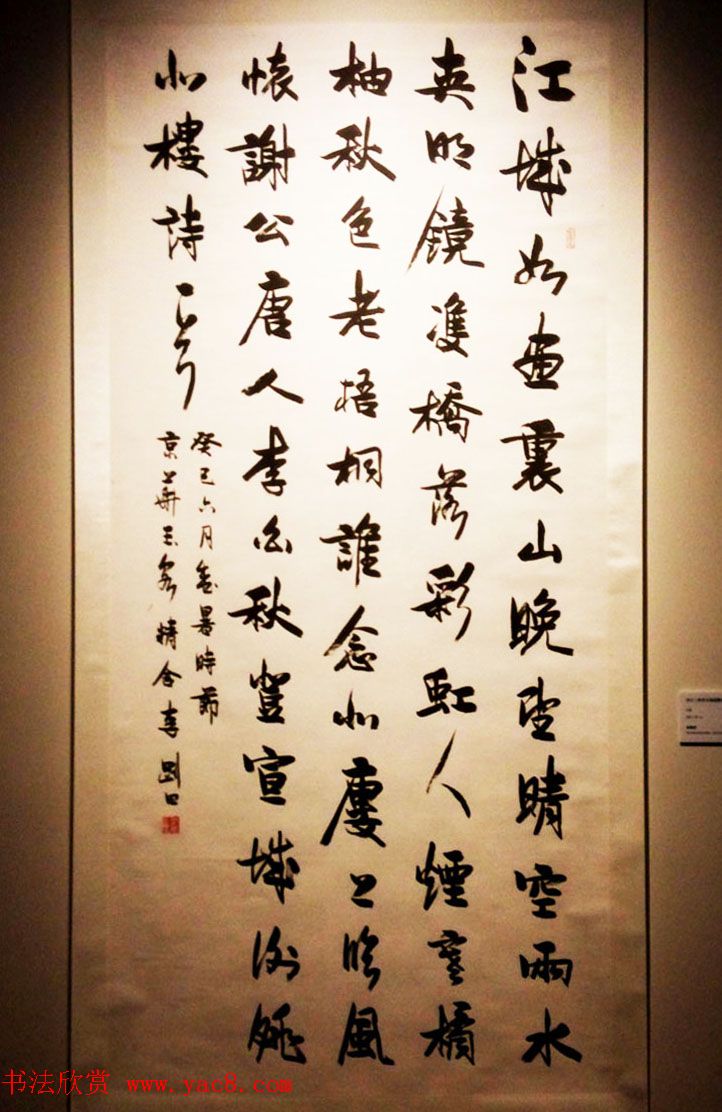 江城如畫裏山晚望晴空雨水
夾明鏡雙橋落彩虹人煙寒橘
柚秋色老梧桐誰念北樓上臨風
懷謝公唐人李白秋登宣城謝朓
北樓詩一首
癸巳六月盛暑時節
京華客精舍李剛田
书法欣赏 www.yac8.com